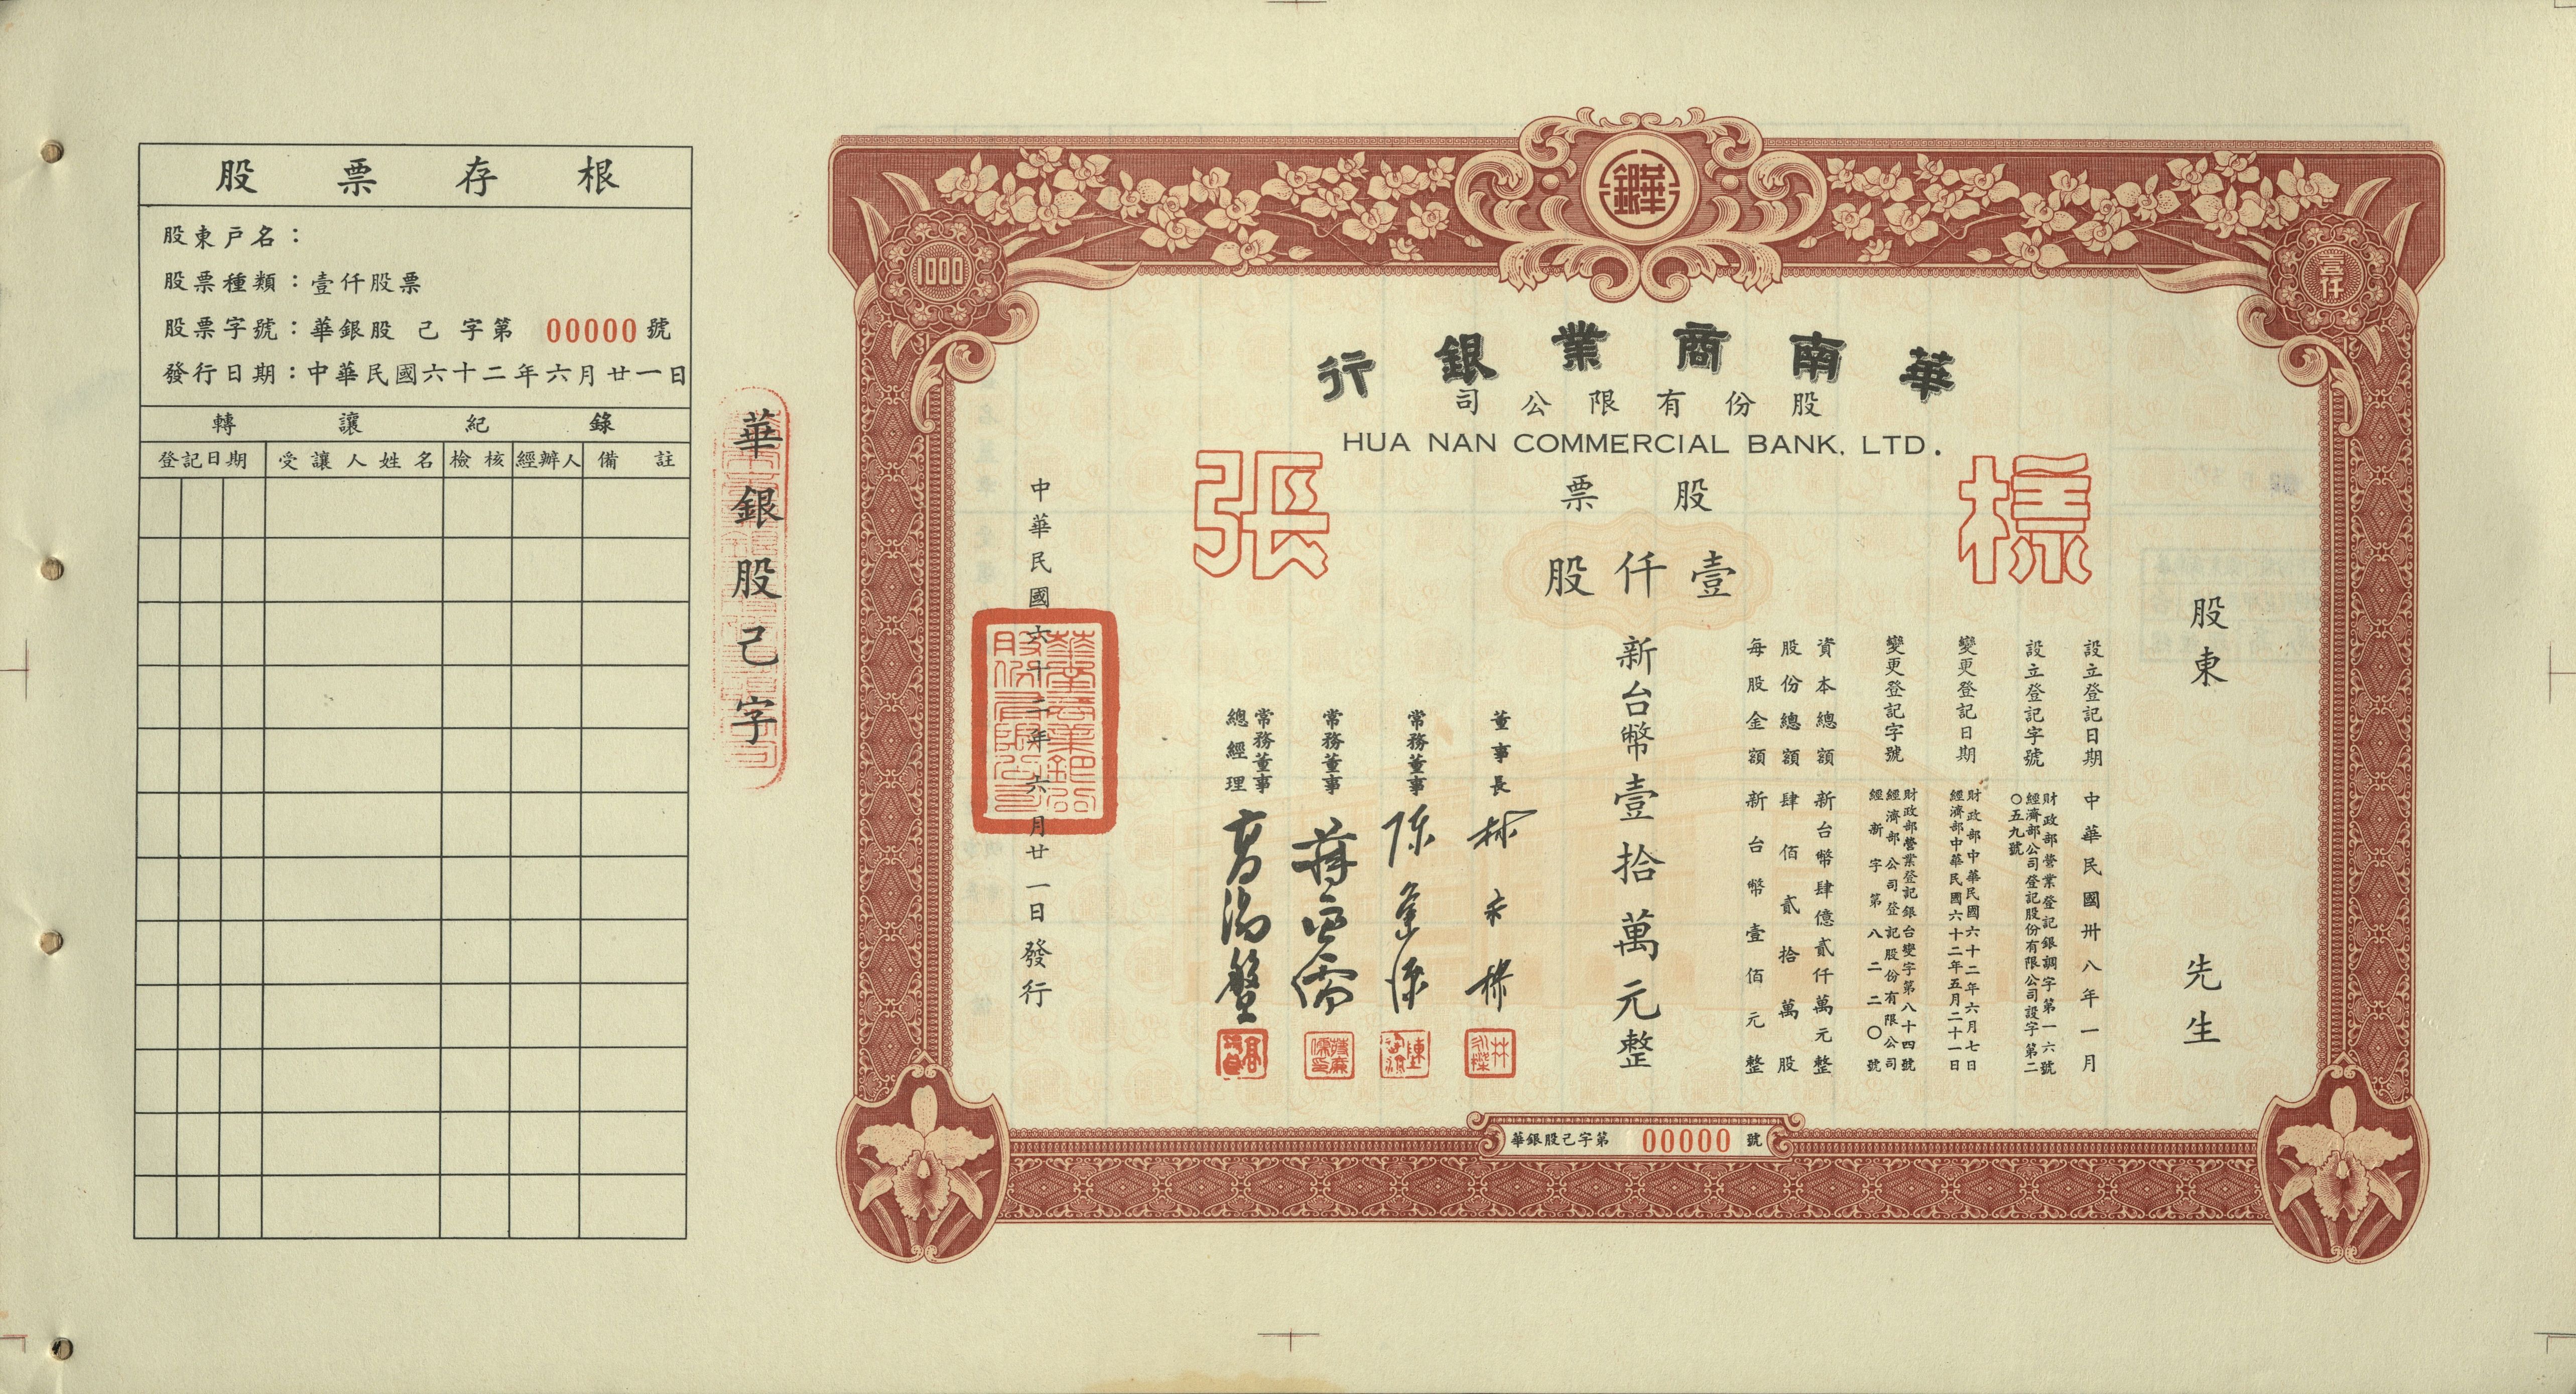 股票存根
股東戶名：
股票種類：壹仟股票
股票字號：華銀股 己 字第 00000 號
發行日期：中華民國六十二年六月廿一日
轉讓紀錄
登記日期 受讓人姓名 檢核 經辦人 備註
華銀股己字
華銀
1000
壹仟
華南商業銀行
股份有限公司
HUA NAN COMMERCIAL BANK, LTD.
樣張
股票
壹仟股
股東 先生
設立登記日期 中華民國卅八年一月
設立登記字號 財政部營業登記銀調字第一六號
經濟部公司登記股份有限公司設字第二〇五九號
變更登記日期 財政部中華民國六十二年六月七日
經濟部中華民國六十二年五月二十一日
變更登記字號 財政部營業登記銀台變字第八十四號
經濟部公司登記股份有限公司
經新字第八二二〇號
資本總額 新台幣肆億貳仟萬元整
股份總額 肆佰貳拾萬股
每股金額 新台幣壹佰元整
新台幣壹拾萬元整
董事長
常務董事
常務董事
常務董事
總經理
中華民國六十二年六月廿一日發行
華銀股己字第 00000 號